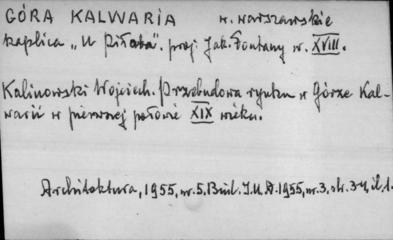 GÓRA KALWARIA w. warszawskie
kaplica „U Piłata". proj. Jak. Fontany w. XVIII.
Kalinowski Wojciech. Przebudowa rynku w Górze Kal-
warii w pierwszej połowie XIX wieku.
Architektura, 1955, nr. 5. Biul. I.U.A. 1955, nr. 3, str. 34, il. 1.